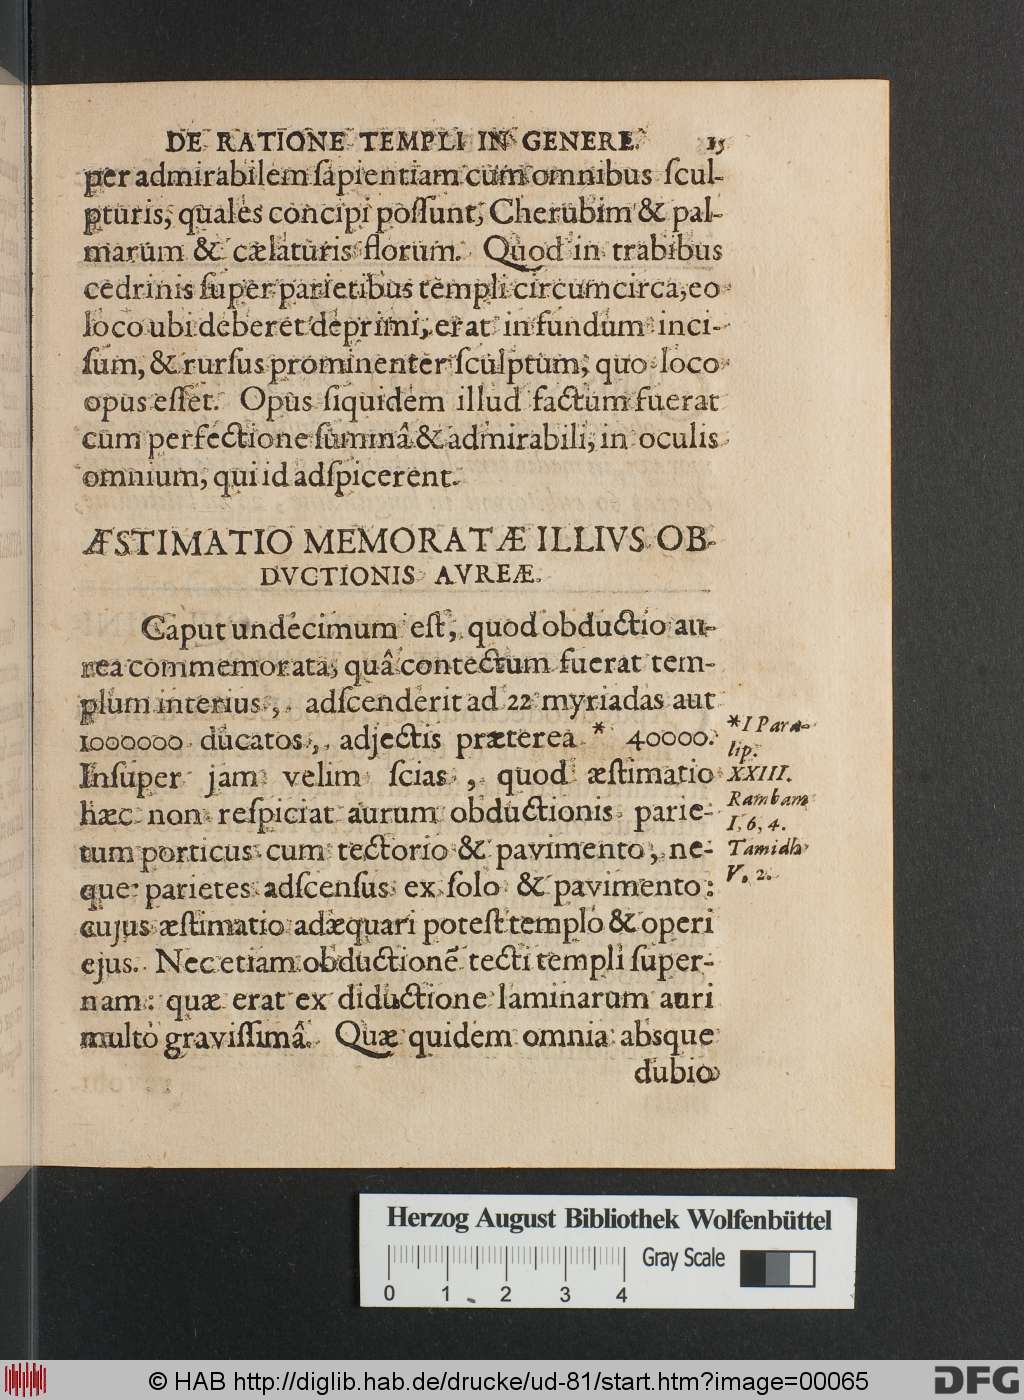 DE RATIONE TEMPLI IN GENERE. 15
per admirabilem ſapientiam cum omnibus ſcul-
pturis, quales concipi poſſunt, Cherubim & pal-
marum & cælaturis florum. Quod in trabibus
cedrinis ſuper parietibus templi circumcirca, eo
loco ubi deberet deprimi, erat in fundum inci-
ſum, & rurſus prominenter ſculptum, quo loco
opus eſſet. Opus ſiquidem illud factum fuerat
cum perfectione ſummâ & admirabili, in oculis
omnium, qui id adſpicerent.
ÆSTIMATIO MEMORATÆ ILLIVS OB-
DVCTIONIS AVREÆ.
Caput undecimum eſt, quod obductio au-
rea commemorata, quâ contectum fuerat tem-
plum interius, adſcenderit ad 22 myriadas aut
1000000 ducatos, adjectis præterea * 40000.
Inſuper jam velim ſcias, quod æſtimatio
hæc non reſpiciat aurum obductionis parie-
tum porticus cum tectorio & pavimento, ne-
que parietes adſcenſus ex ſolo & pavimento:
cujus æſtimatio adæquari poteſt templo & operi
ejus. Nec etiam obductionẽ tecti templi ſuper-
nam: quæ erat ex diductione laminarum auri
multò graviſſimâ. Quæ quidem omnia absque
dubio
*I Para-
lip.
XXIII.
Rambam
I, 6, 4.
Tamidh
V. 2.
Herzog August Bibliothek Wolfenbüttel
Gray Scale
0 1 2 3 4
© HAB http://diglib.hab.de/drucke/ud-81/start.htm?image=00065
DFG